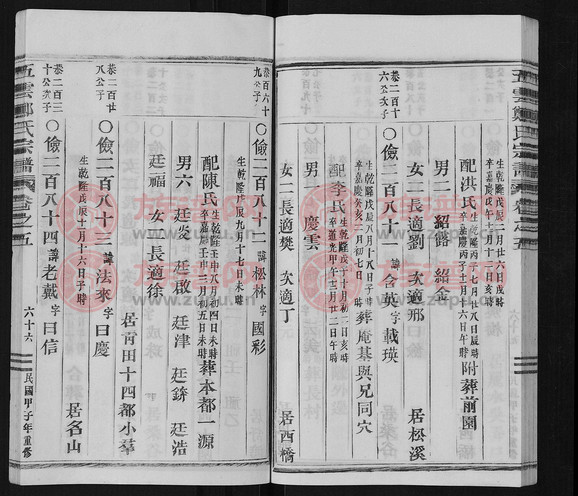 五雲鄭氏宗譜 卷之五
生乾隆戊辰 月廿六日戌時
卒嘉慶戊午七月十二日 時
配洪氏生乾隆丙子七月廿八日辰時
卒嘉慶丙子十一月十六日午時
附葬前園
男二 紹露 紹金
女二 長適劉 次適邢
居松溪
恭二百十
六公次子
○儉二百八十一 諱含英 字載瑛
生乾隆戊辰八月十八日子時
卒嘉慶癸亥二月初三日亥時
葬庵基與兄同穴
配李氏生乾隆戊子十月初二日亥時
卒道光甲午三月廿二日 時
男一 慶雲
女二 長適樊 次適丁
居西橋
恭二百六十
九公子
○儉二百八十二 諱松林 字國彩
生乾隆戊辰九月十七日未時
配陳氏生乾隆壬申三月初四日未時
卒嘉慶壬申二月初五日未時
葬本都一源
男六 廷炎 廷啟 廷津 廷錛 廷浩
廷福 女一 長適徐
居青田十四都小羣
恭二百廿
八公子
○儉二百八十三 諱法來 字曰慶
生乾隆戊辰十月十六日子時
居名山
恭二百三
十公次子
○儉二百八十四 諱老戴 字曰信
五雲鄭氏宗譜 卷之五
六十六
民國甲子年重修
族譜网
www.zupu.cn